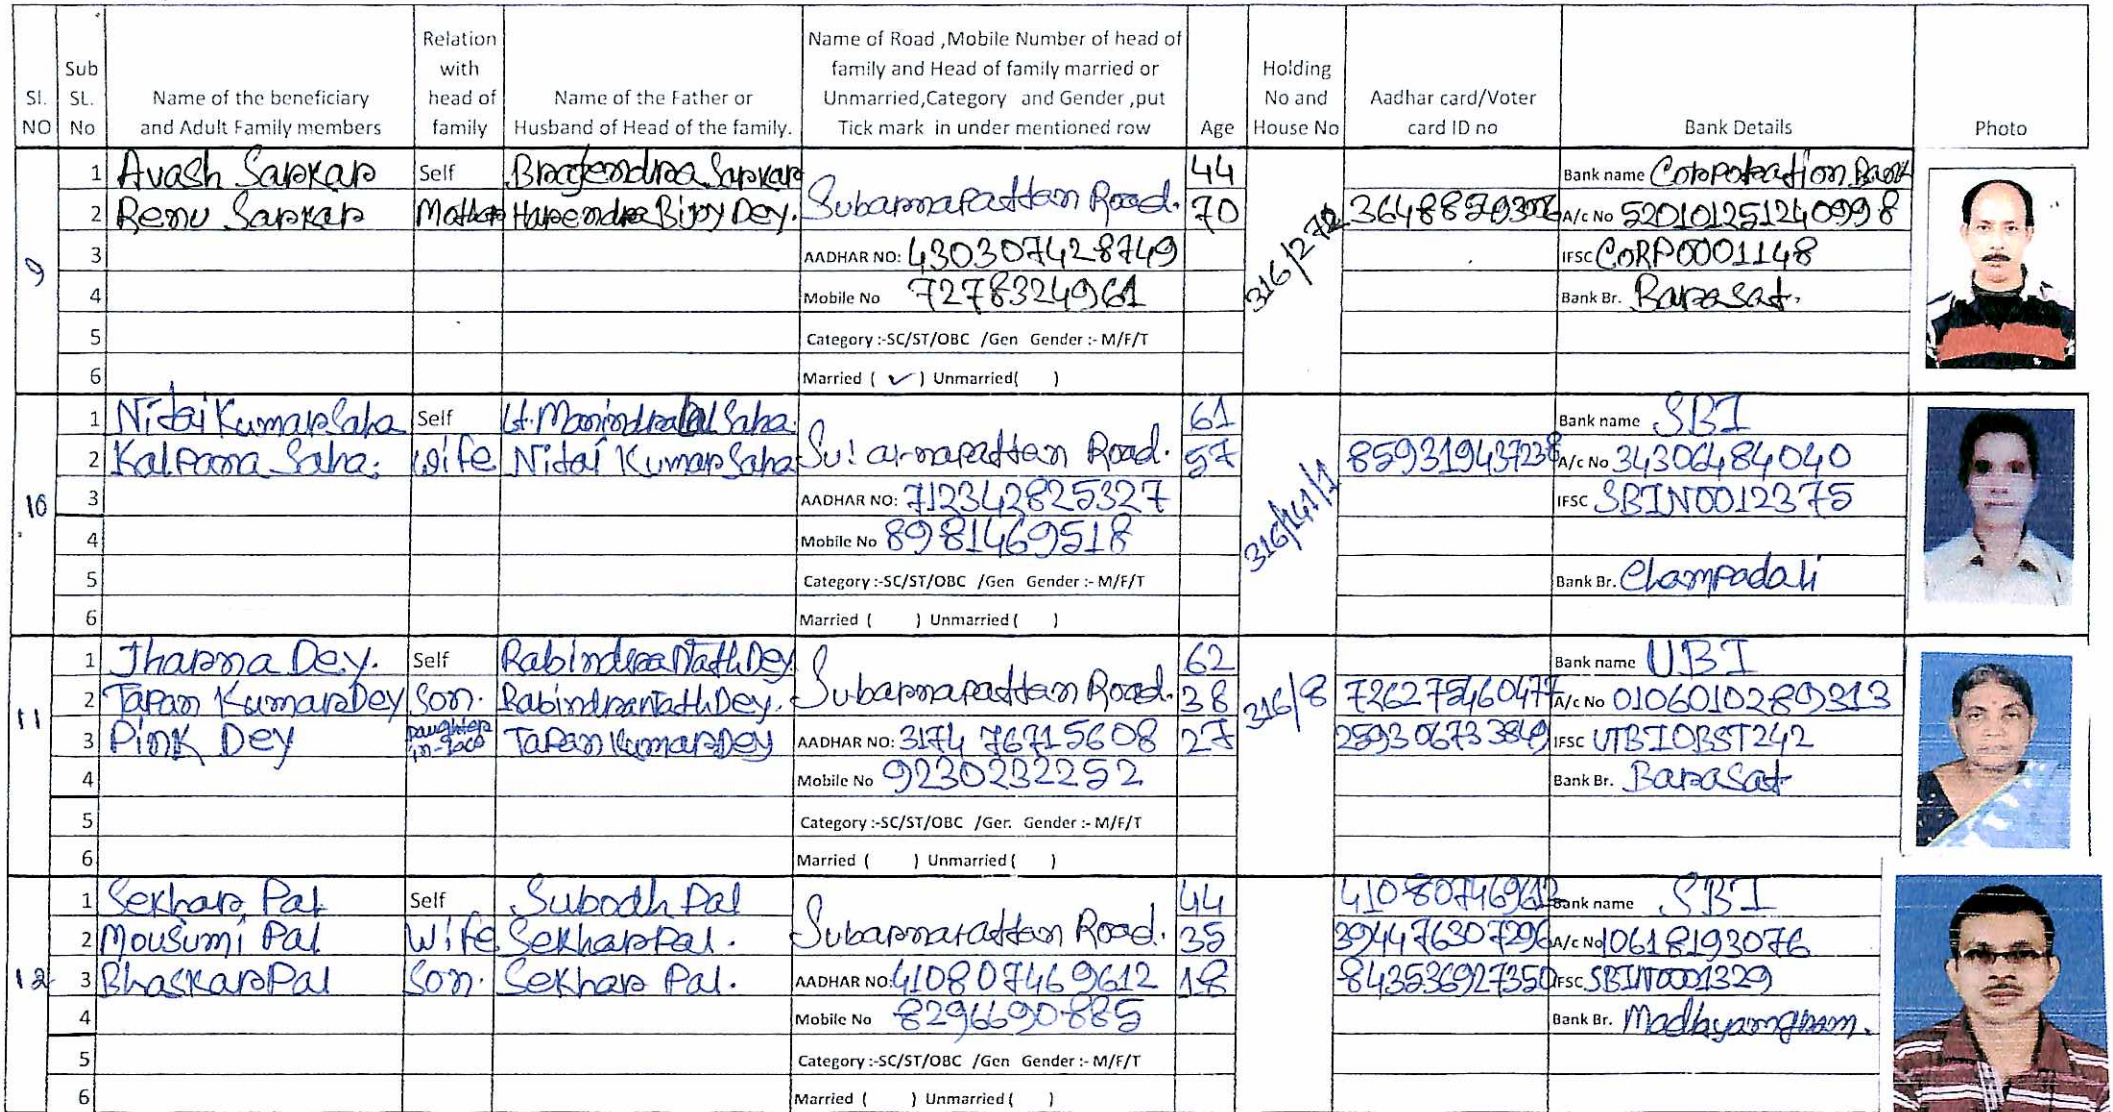 Sl. NO | Sub SL. No | Name of the beneficiary and Adult Family members | Relation with head of family | Name of the Father or Husband of Head of the family. | Name of Road ,Mobile Number of head of family and Head of family married or Unmarried,Category and Gender ,put Tick mark in under mentioned row | Age | Holding No and House No | Aadhar card/Voter card ID no | Bank Details | Photo
9
1 Avash Sarkar Self Brajendra Sarkar Subarnapattan Road. 44 Bank name Corporation Bank
2 Renu Sarkar Mother Harendra Bijoy Dey. 70 316/272 A/c No 520101251240998
3 AADHAR NO: 430307428749 IFSC CORP0001148
4 Mobile No 7278324961 Bank Br. Barasat.
5 Category :-SC/ST/OBC /Gen Gender :- M/F/T
6 Married ( ✓ ) Unmarried( )
10
1 Nitai Kumar Saha Self Lt. Manindralal Saha. Subarnapattan Road. 61 Bank name SBI
2 Kalpana Saha. Wife Nitai Kumar Saha 57 316/141/1 859319437238 A/c No 34306484040
3 AADHAR NO: 712342825327 IFSC SBIN0012375
4 Mobile No 8981469518
5 Category :-SC/ST/OBC /Gen Gender :- M/F/T Bank Br. Champadali
6 Married ( ) Unmarried ( )
11
1 Jharna Dey. Self Rabindra Nath Dey Subarnapattan Road. 62 Bank name UBI
2 Tapan Kumar Dey Son. Rabindra Nath Dey. 38 316/8 A/c No 0106010289313
3 Pink Dey Daughter in-law Tapan Kumar Dey AADHAR NO: 3174 76715608 27 259306733849 IFSC UTBIOBST242
4 Mobile No 9230232252 Bank Br. Barasat
5 Category :-SC/ST/OBC /Gen Gender :- M/F/T
6 Married ( ) Unmarried ( )
12
1 Sekhar Pal Self Subodh Pal Subarnapattan Road. 44 410807469612 Bank name SBI
2 Mousumi Pal Wife Sekhar Pal. 35 394476307296 A/c No 10618193076
3 Bhaskar Pal Son. Sekhar Pal. AADHAR NO: 410807469612 18 843536927350 IFSC SBIN0001329
4 Mobile No 8296690885 Bank Br. Madhyamgram.
5 Category :-SC/ST/OBC /Gen Gender :- M/F/T
6 Married ( ) Unmarried ( )